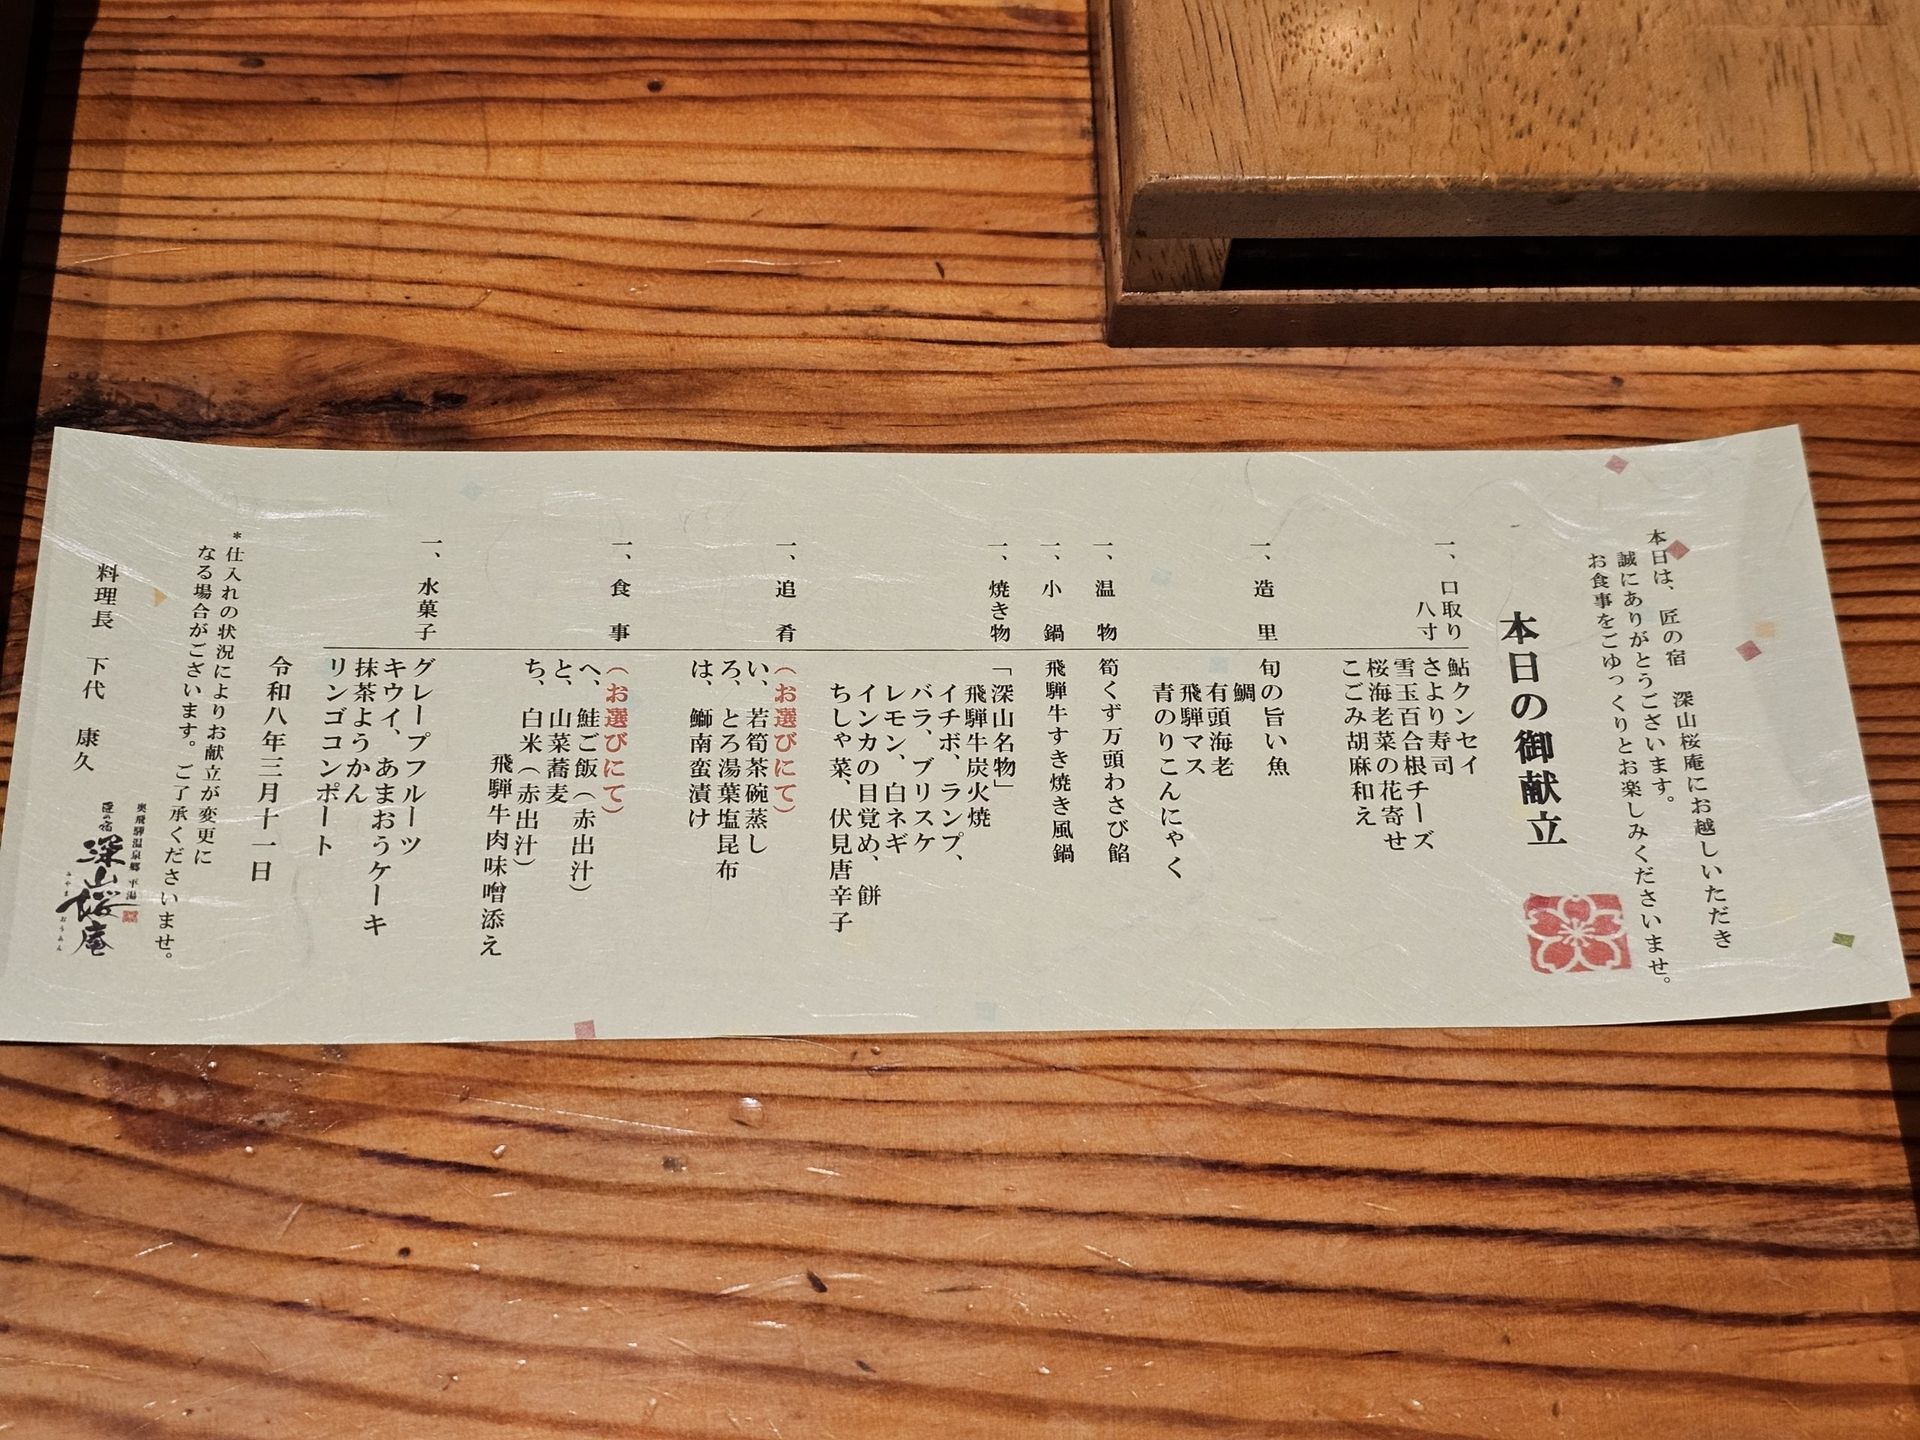 本日は、匠の宿 深山桜庵にお越しいただき
誠にありがとうございます。
お食事をごゆっくりとお楽しみくださいませ。
本日の御献立
一、口取り
八寸
鮎クンセイ
さより寿司
雪玉百合根チーズ
桜海老菜の花寄せ
こごみ胡麻和え
一、造里
旬の旨い魚
鯛
有頭海老
飛騨マス
青のりこんにゃく
一、温物
筍くず万頭わさび餡
一、小鍋
飛騨牛すき焼き風鍋
一、焼き物
「深山名物」
飛騨牛炭火焼
イチボ、ランプ、
バラ、ブリスケ
レモン、白ネギ
インカの目覚め、餅
ちしゃ菜、伏見唐辛子
一、追肴
(お選びにて)
い、若筍茶碗蒸し
ろ、とろ湯葉塩昆布
は、鰤南蛮漬け
一、食事
(お選びにて)
へ、鮭ご飯(赤出汁)
と、山菜蕎麦
ち、白米(赤出汁)
飛騨牛肉味噌添え
一、水菓子
グレープフルーツ
キウイ、あまおうケーキ
抹茶ようかん
リンゴコンポート
令和八年三月十一日
*仕入れの状況によりお献立が変更に
なる場合がございます。ご了承くださいませ。
料理長 下代 康久
奥飛騨温泉郷 平湯
匠の宿
深山桜庵
みやまおうあん